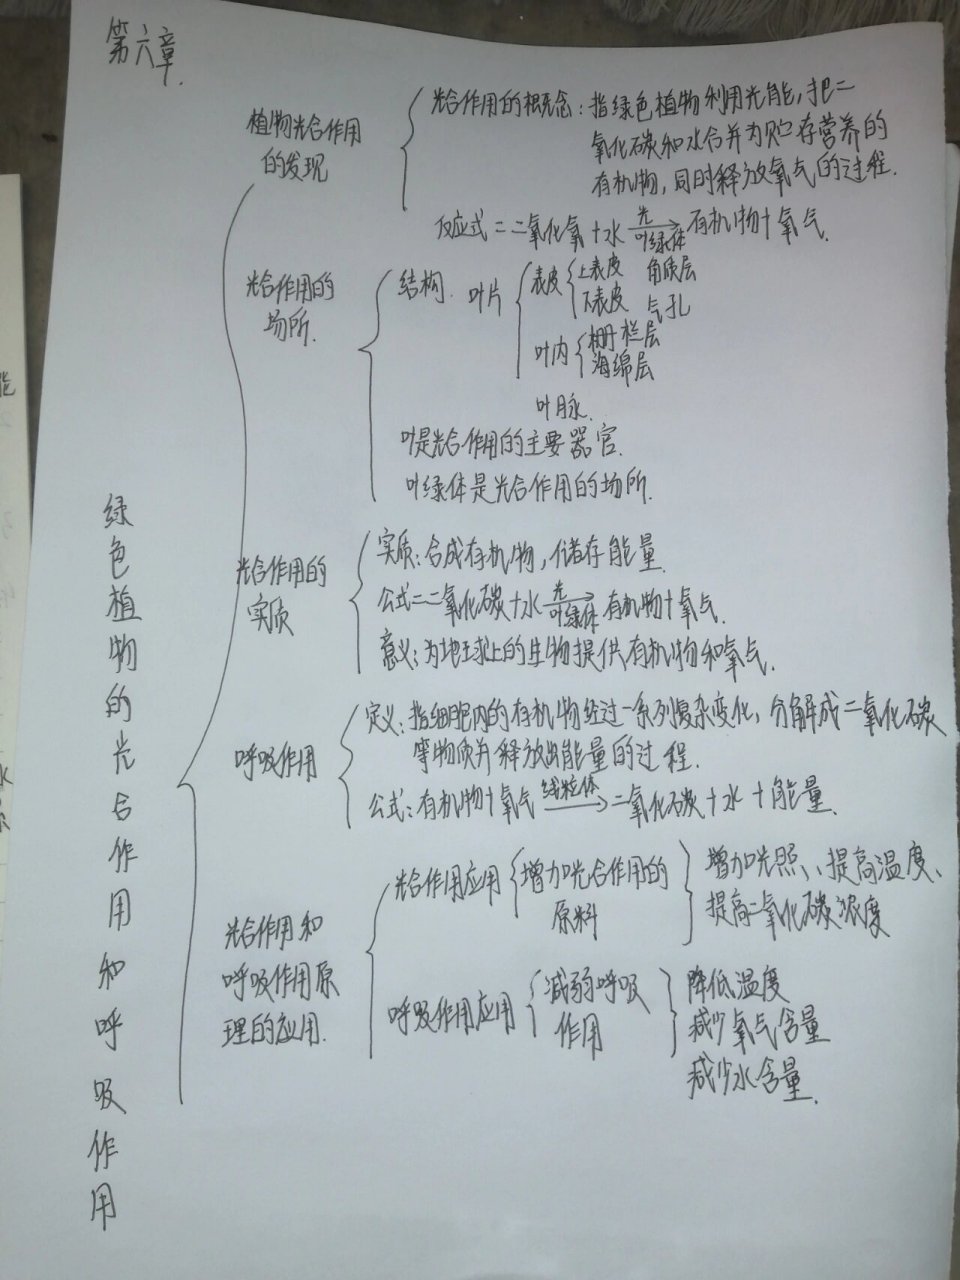 第六章.
植物光合作用
的发现
光合作用的概念：指绿色植物利用光能，把二
氧化碳和水合并为贮存营养的
有机物，同时释放氧气的过程.
反应式=二氧化氧+水 光 叶绿体 → 有机物+氧气.
光合作用的
场所.
结构. 叶片
表皮
上表皮 角质层
下表皮 气孔
叶内
栅栏层
海绵层
叶脉.
叶是光合作用的主要器官.
叶绿体是光合作用的场所.
光合作用的
实质
实质：合成有机物，储存能量.
公式=二氧化碳+水 光 叶绿体 → 有机物+氧气.
意义：为地球上的生物提供有机物和氧气.
呼吸作用
定义：指细胞内的有机物经过一系列复杂变化，分解成二氧化碳
等物质并释放出能量的过程.
公式：有机物+氧气 线粒体 → 二氧化碳+水+能量.
光合作用和
呼吸作用原
理的应用.
光合作用应用
增加光合作用的
原料
增加光照、提高温度、
提高二氧化碳浓度
呼吸作用应用
减弱呼吸
作用
降低温度
减少氧气含量
减少水含量.
绿色植物的光合作用和呼吸作用